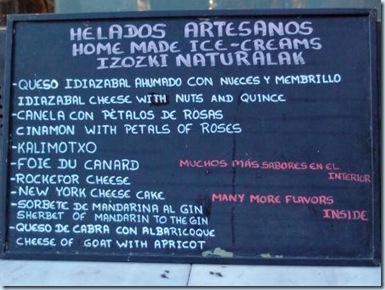 HELADOS ARTESANOS
HOME MADE ICE-CREAMS
IZOZKI NATURALAK
-QUESO IDIAZABAL AHUMADO CON NUECES Y MEMBRILLO
IDIAZABAL CHEESE WITH NUTS AND QUINCE
-CANELA CON PÈTALOS DE ROSAS
CINAMON WITH PETALS OF ROSES
-KALIMOTXO
-FOIE DU CANARD
-ROCKEFOR CHEESE
-NEW YORK CHEESE CAKE
-SORBETE DE MANDARINA AL GIN
SHERBET OF MANDARIN TO THE GIN
-QUESO DE CABRA CON ALBARICOQUE
CHEESE OF GOAT WITH APRICOT
MUCHOS MÁS SABORES EN EL
INTERIOR
MANY MORE FLAVORS
INSIDE